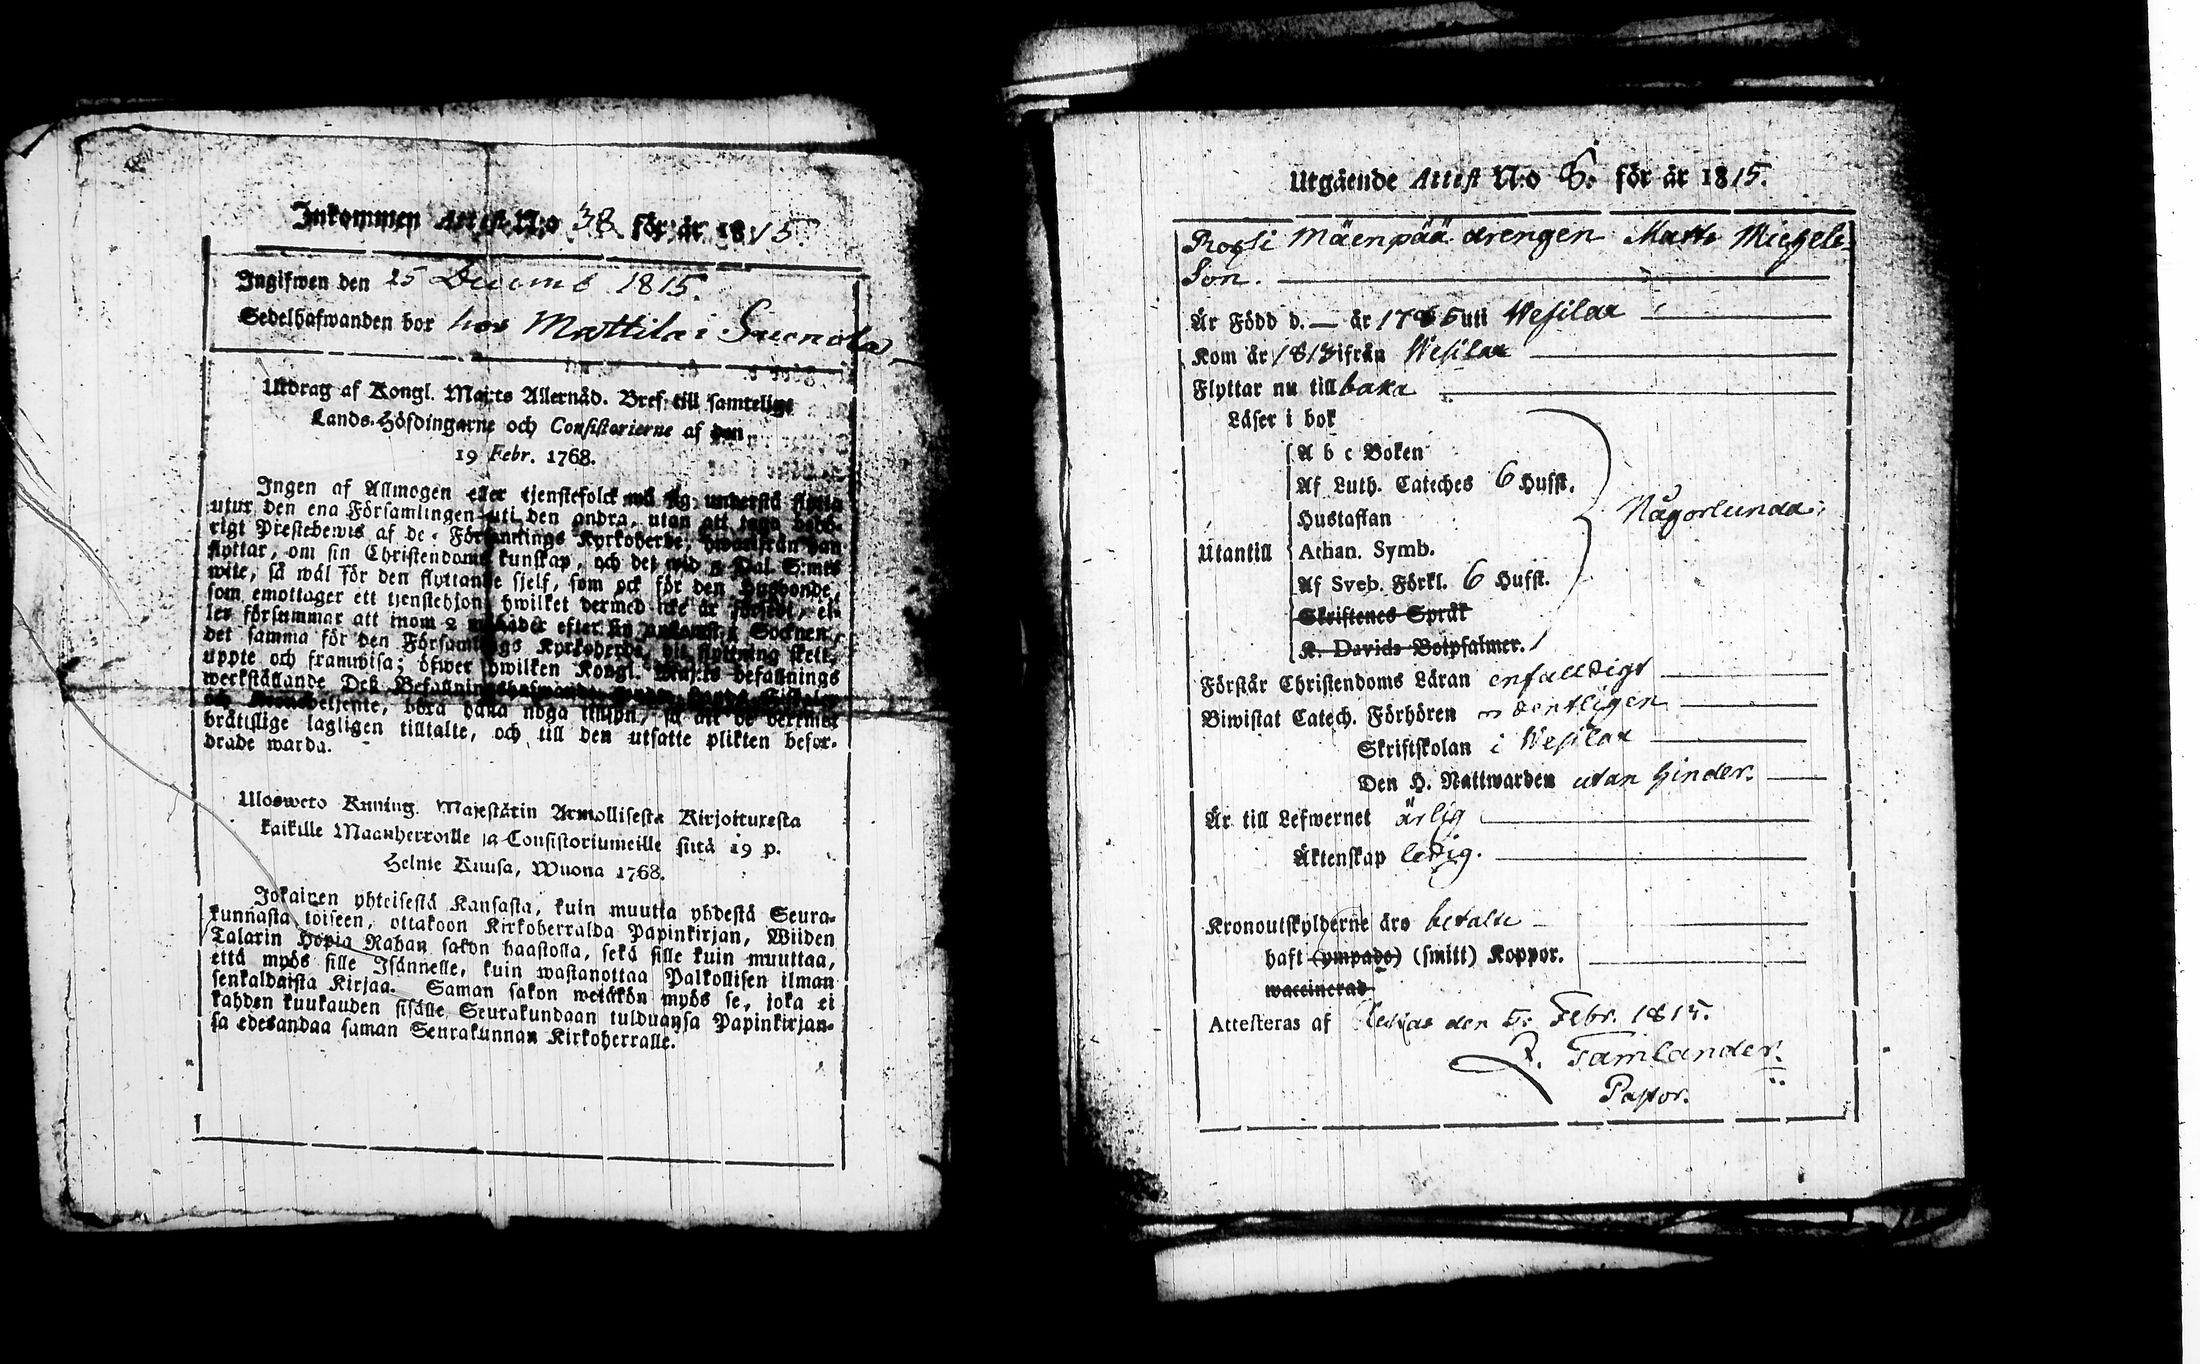 Inkommen Attest N:o 38 för år 1815.
Ingifwen den 25 Decemb 1815.
Sedelhafwanden bor hos Mattila i
Utdrag af Kongl. Maj:ts Allernåd. Bref till samtelige
Lands-Höfdingarne och Consistorierne af den
19 Febr. 1768.
Ingen af Allmogen eller tjenstefolck må sig understå flytta
utur den ena Församlingen uti den andra, utan att taga behö-
rigt Prestebewis af de Församlings Kyrkoherde, hwarifrån han
flyttar, om sin Christendoms kunskap, och det wid 5 Dal. S:mts
wite, så wäl för den flyttande sjelf, som ock för den Husbonde,
som emottager ett tjenstehjon hwilket dermed icke är försedt, el-
ler försummar att inom 2 månader efter sin ankomst i Socknen,
det samma för den Församlings Kyrkoherde, dit flyttning skett,
uppte och framwisa; öfwer hwilken Kongl. Maj:ts befallnings
werkställande Deß Befallningshafwande
och Kronobetjente, böra hafa noga tillsyn, så att de dermot
bråttslige lagligen tilltalte, och till den utsatte plikten befor-
drade warda.
Ulosweto Kuning. Majestätin Armollisesta Kirjoituresta
kaikille Maanherroille ja Consistoriumeille siitä 19 p.
Helmie Kuusa, Wuona 1768.
Jokainen yhteisestä Kansasta, kuin muutta yhdestä Seura-
kunnasta toiseen, ottakoon Kirkoherralda Papinkirjan, Wiiden
Talarin Hopia Rahan sakon haastolla, sekä sille kuin muuttaa,
että myös sille Isännelle, kuin wastanottaa Palkollisen ilman
senkaldaista Kirjaa. Saman sakon wetäkön myös se, joka ei
kahden kuukauden sisälle Seurakundaan tulduansa Papinkirjan-
sa edesandaa saman Seurakunnan Kirkoherralle.
Utgående Attest N:o 8. för år 1815.
Mäenpää drengen Matts Michels
Son.
År Född d. — år uti Wesilax
Kom år 1813 ifrån Wesilax
Flyttar nu tillbaka
Läser i bok
A b c Boken
Af Luth. Cateches 6 Hufst.
Hustaflan
Någorlunda
Utantill
Athan. Symb.
Af Sveb. Förkl. 6 Hufst.
Skriftenes Språk
K. Davids Botpsalmer.
Förstår Christendoms Läran enfalldigt
Biwistat Catech. Förhören ordentligen
Skriftskolan i Wesilax
Den H. Nattwarden utan hinder.
Är till Lefwernet ärlig
Äktenskap ledig.
Kronoutskylderne äro betalte
haft (ympade) (smitt) Koppor.
waccinerad
Attesteras af den 5. Febr. 1815.
Tamlander.
Pastor.